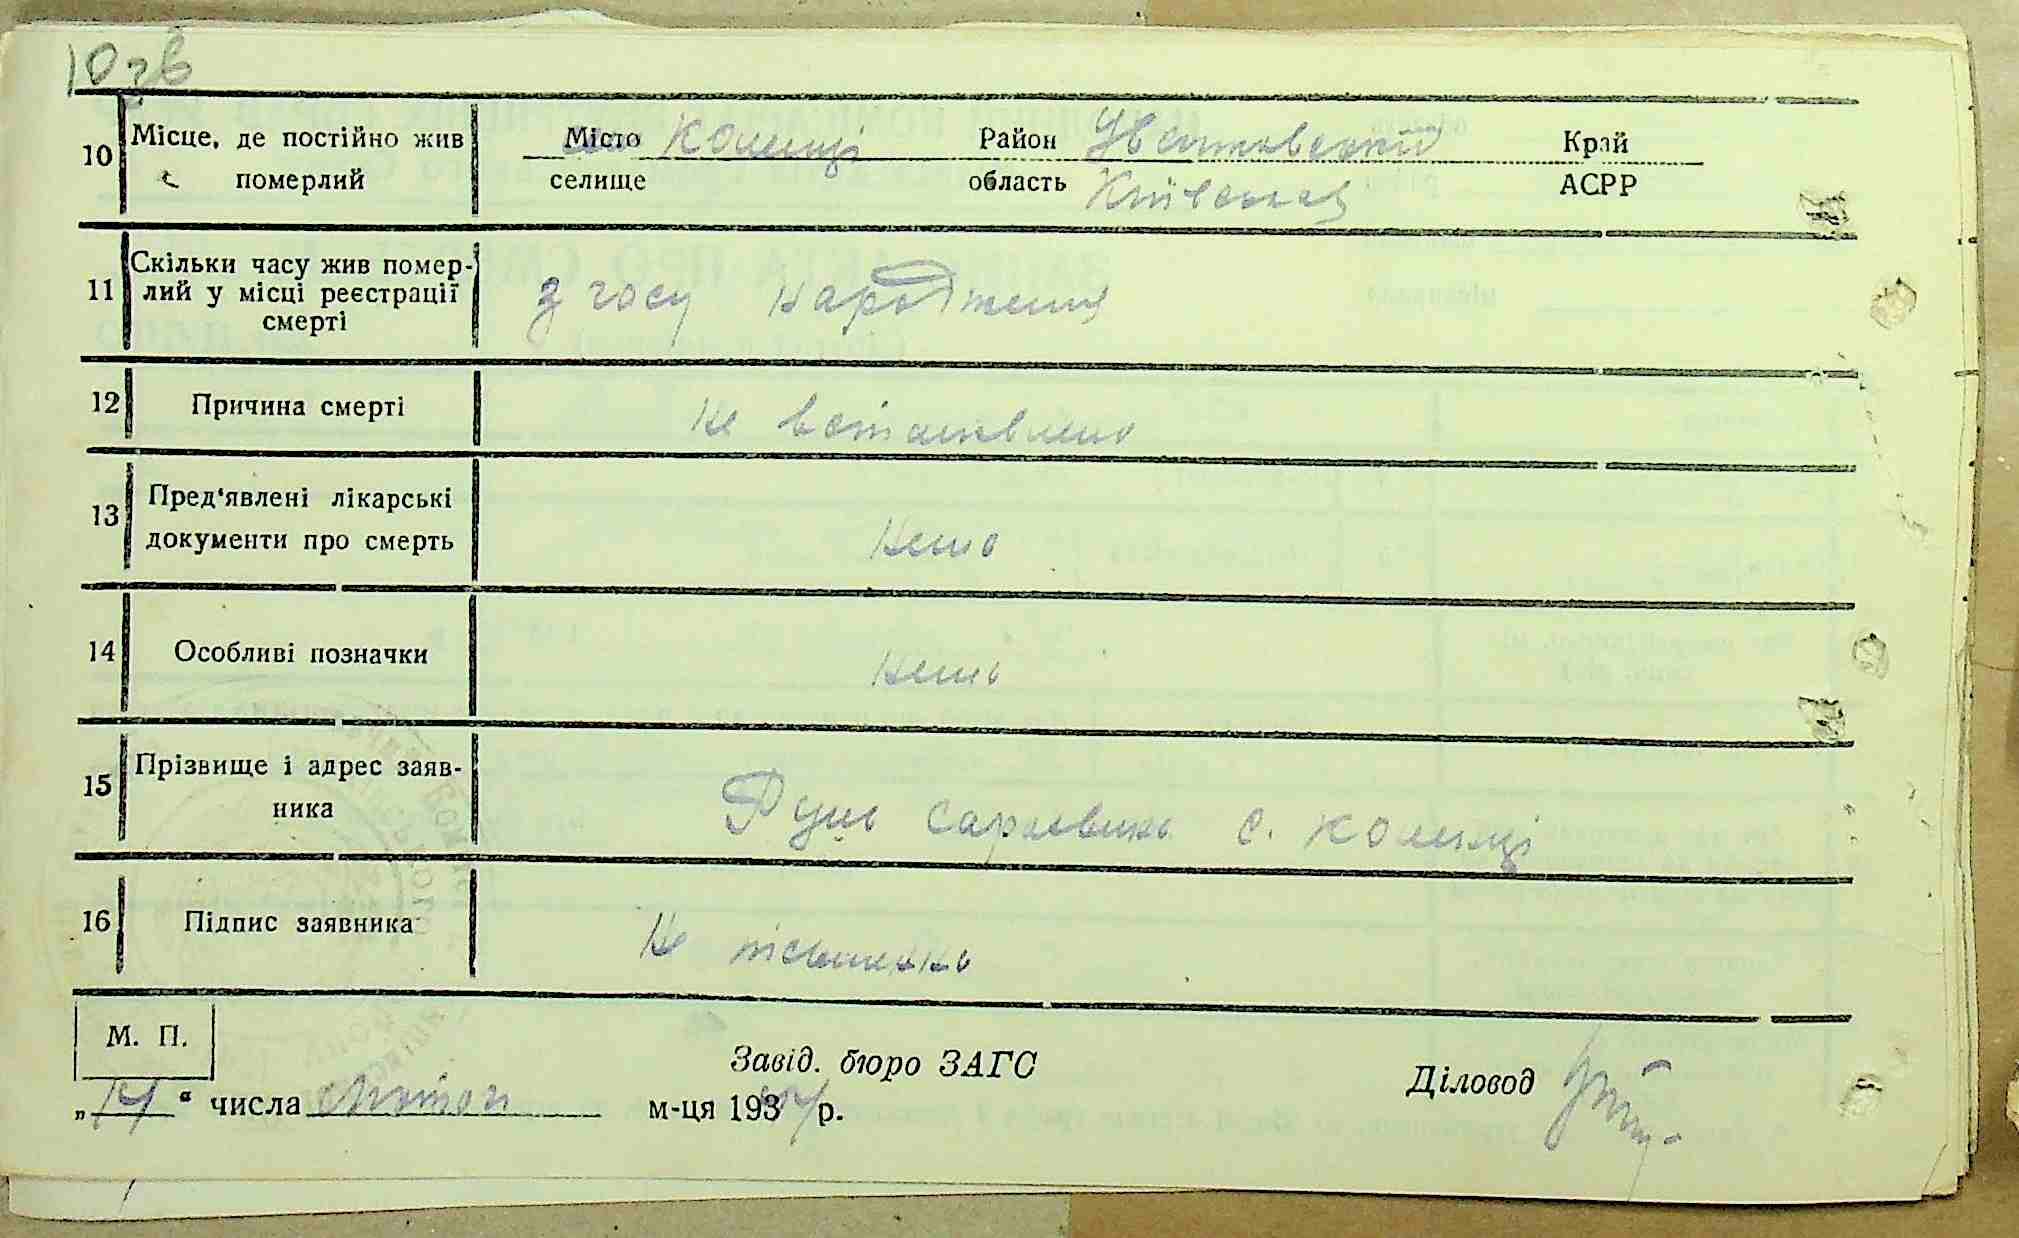 10зв
10 Місце, де постійно жив Місто Копилці Район Край
померлий селище область Київська АСРР
11 Скільки часу жив помер-
лий у місці реєстрації з часу народження
смерті
12 Причина смерті не встановлено
13 Пред'явлені лікарські
документи про смерть нема
14 Особливі позначки нема
15 Прізвище і адрес заяв-
ника с.
16 Підпис заявника не письменна
М. П.
Завід. бюро ЗАГС Діловод
„14“ числа лютого м-ця 1934 р.